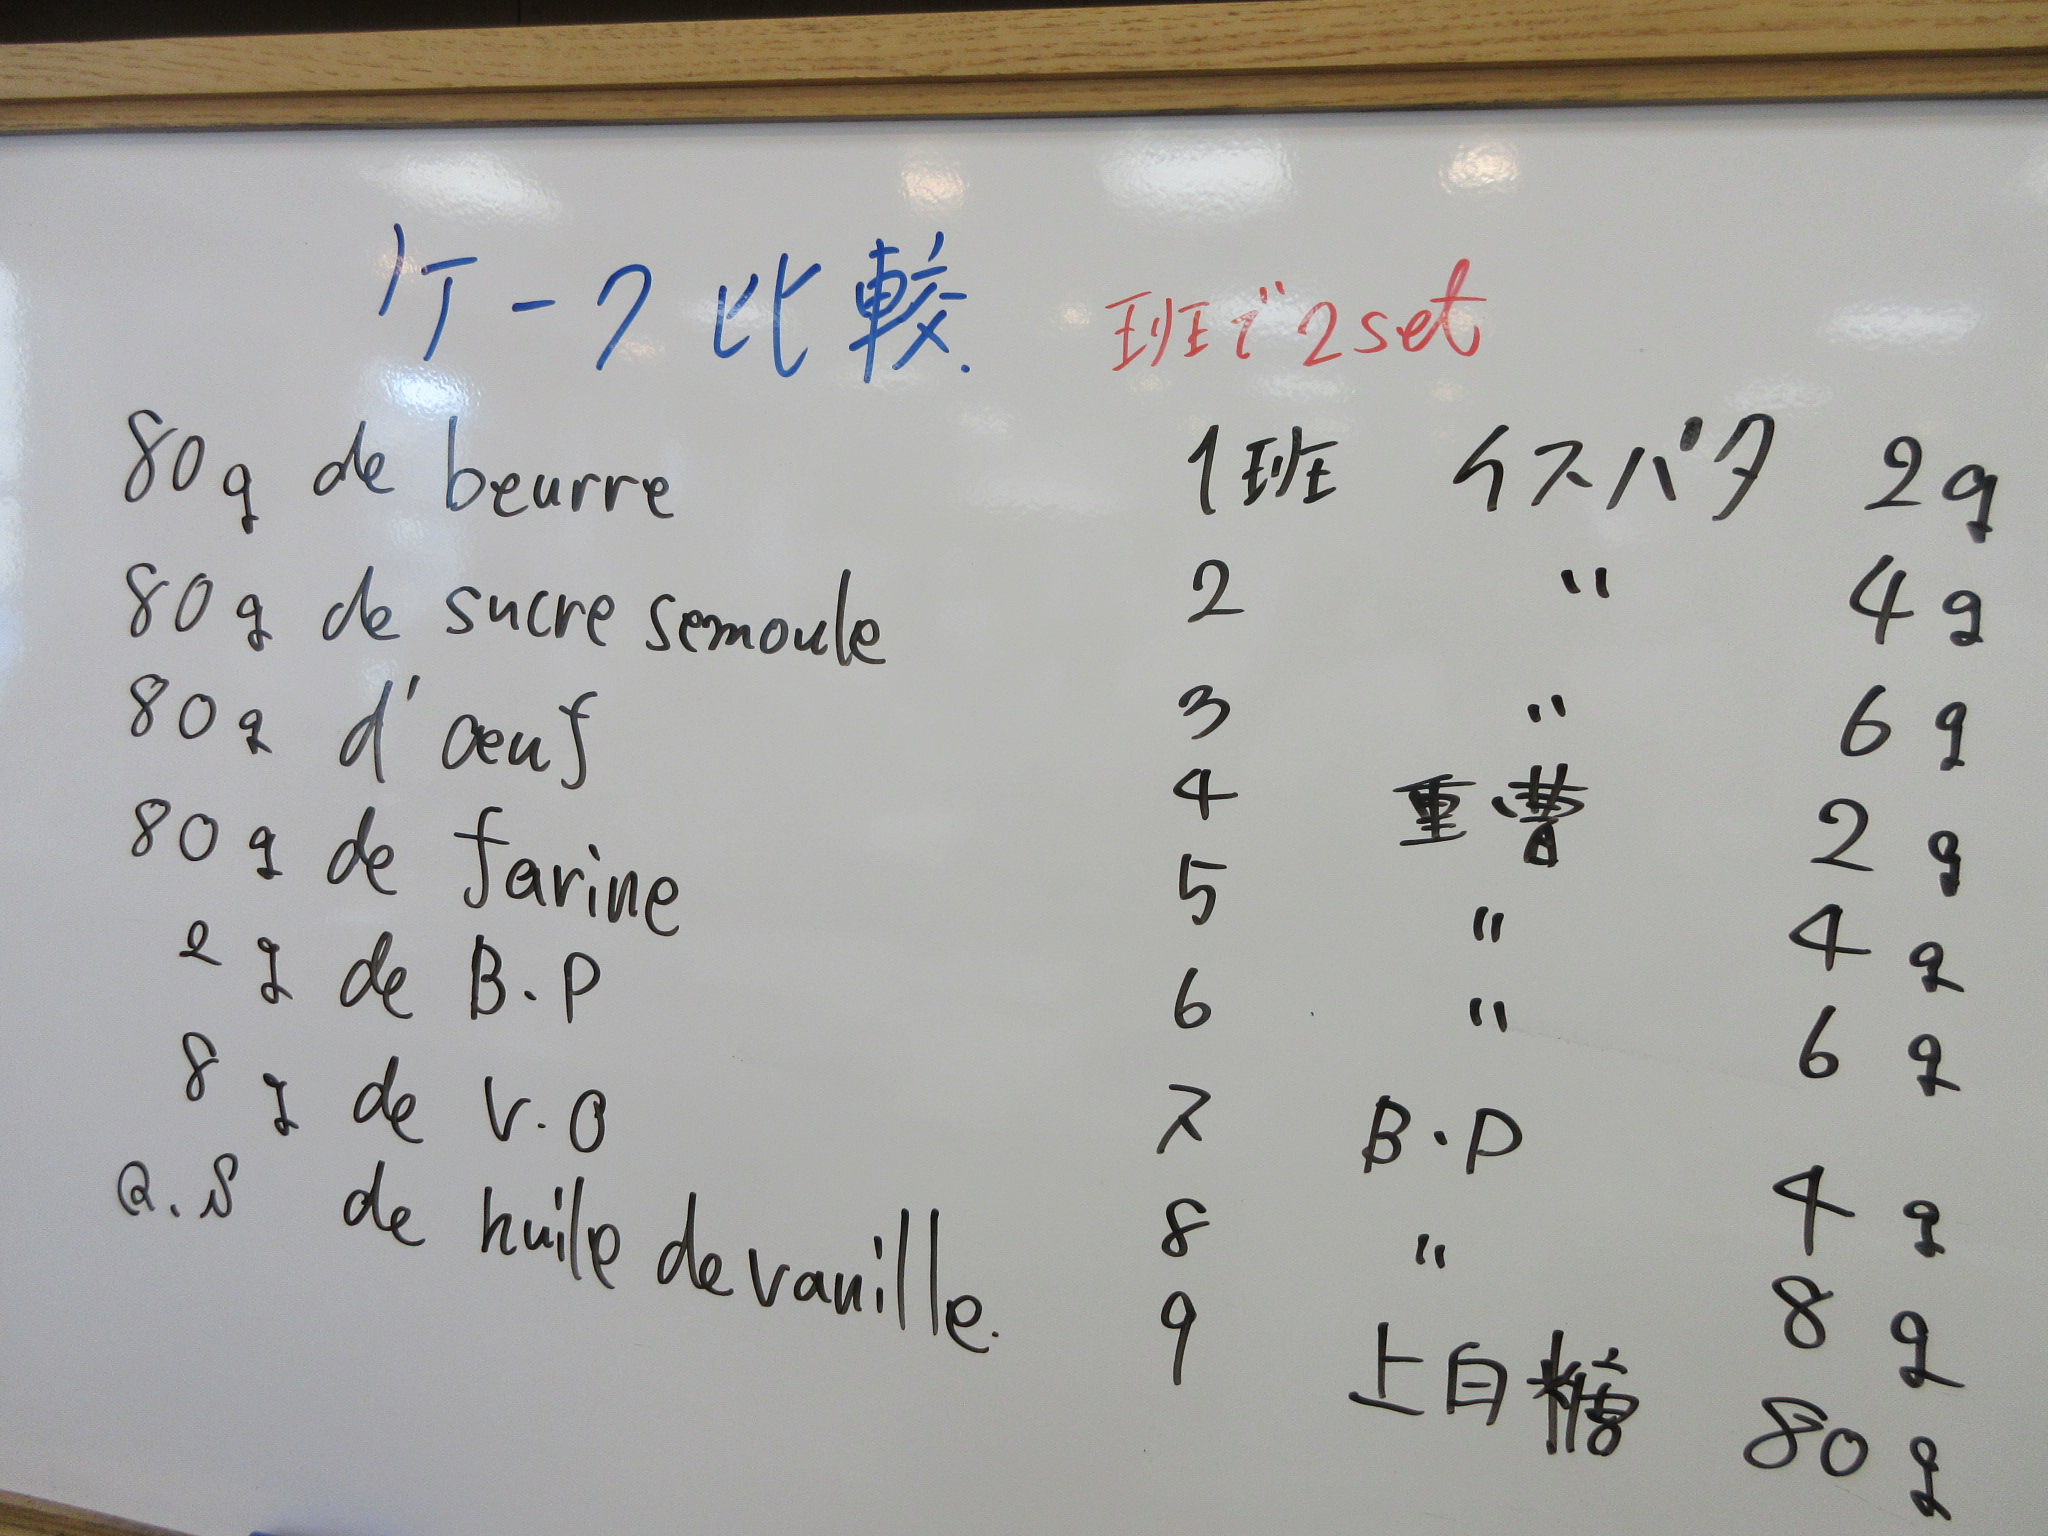 ケーク比較. 班で2set
80g de beurre
80g de sucre semoule
80g d'œuf
80g de farine
2g de B.P
8g de V.O
Q.S de huile de vanille.
1班 イスパタ 2g
2 〃 4g
3 〃 6g
4 重曹 2g
5 〃 4g
6 〃 6g
7 B.P 4g
8 〃 8g
9 上白糖 80g